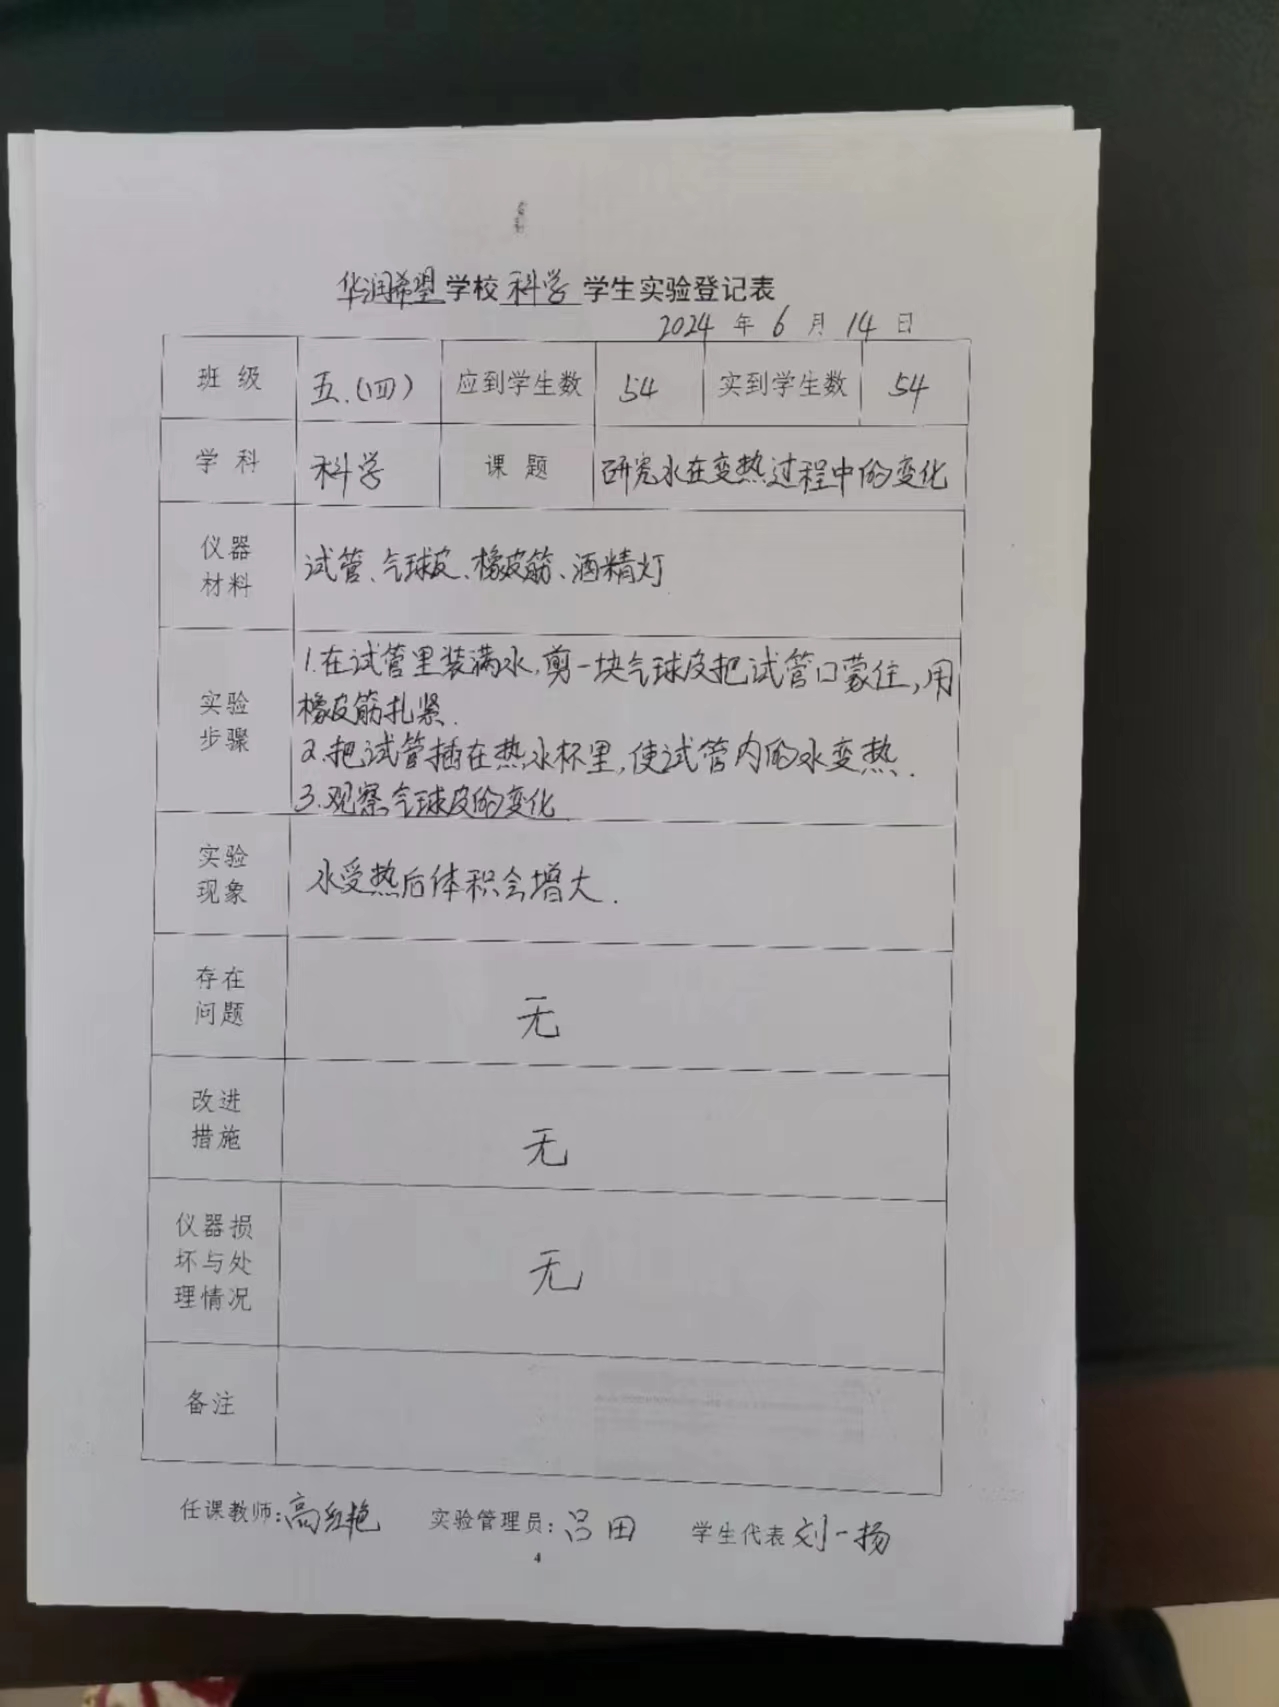 华润希望学校科学学生实验登记表
2024年6月14日
班级 五.(四) 应到学生数 54 实到学生数 54
学科 科学 课题 研究水在变热过程中的变化
仪器
材料
试管、气球皮、橡皮筋、酒精灯
实验
步骤
1.在试管里装满水,剪一块气球皮把试管口蒙住,用
橡皮筋扎紧.
2.把试管插在热水杯里,使试管内的水变热.
3.观察气球皮的变化
实验
现象
水受热后体积会增大.
存在
问题
无
改进
措施
无
仪器损
坏与处
理情况
无
备注
任课教师:高红艳 实验管理员:吕田 学生代表刘一扬
4